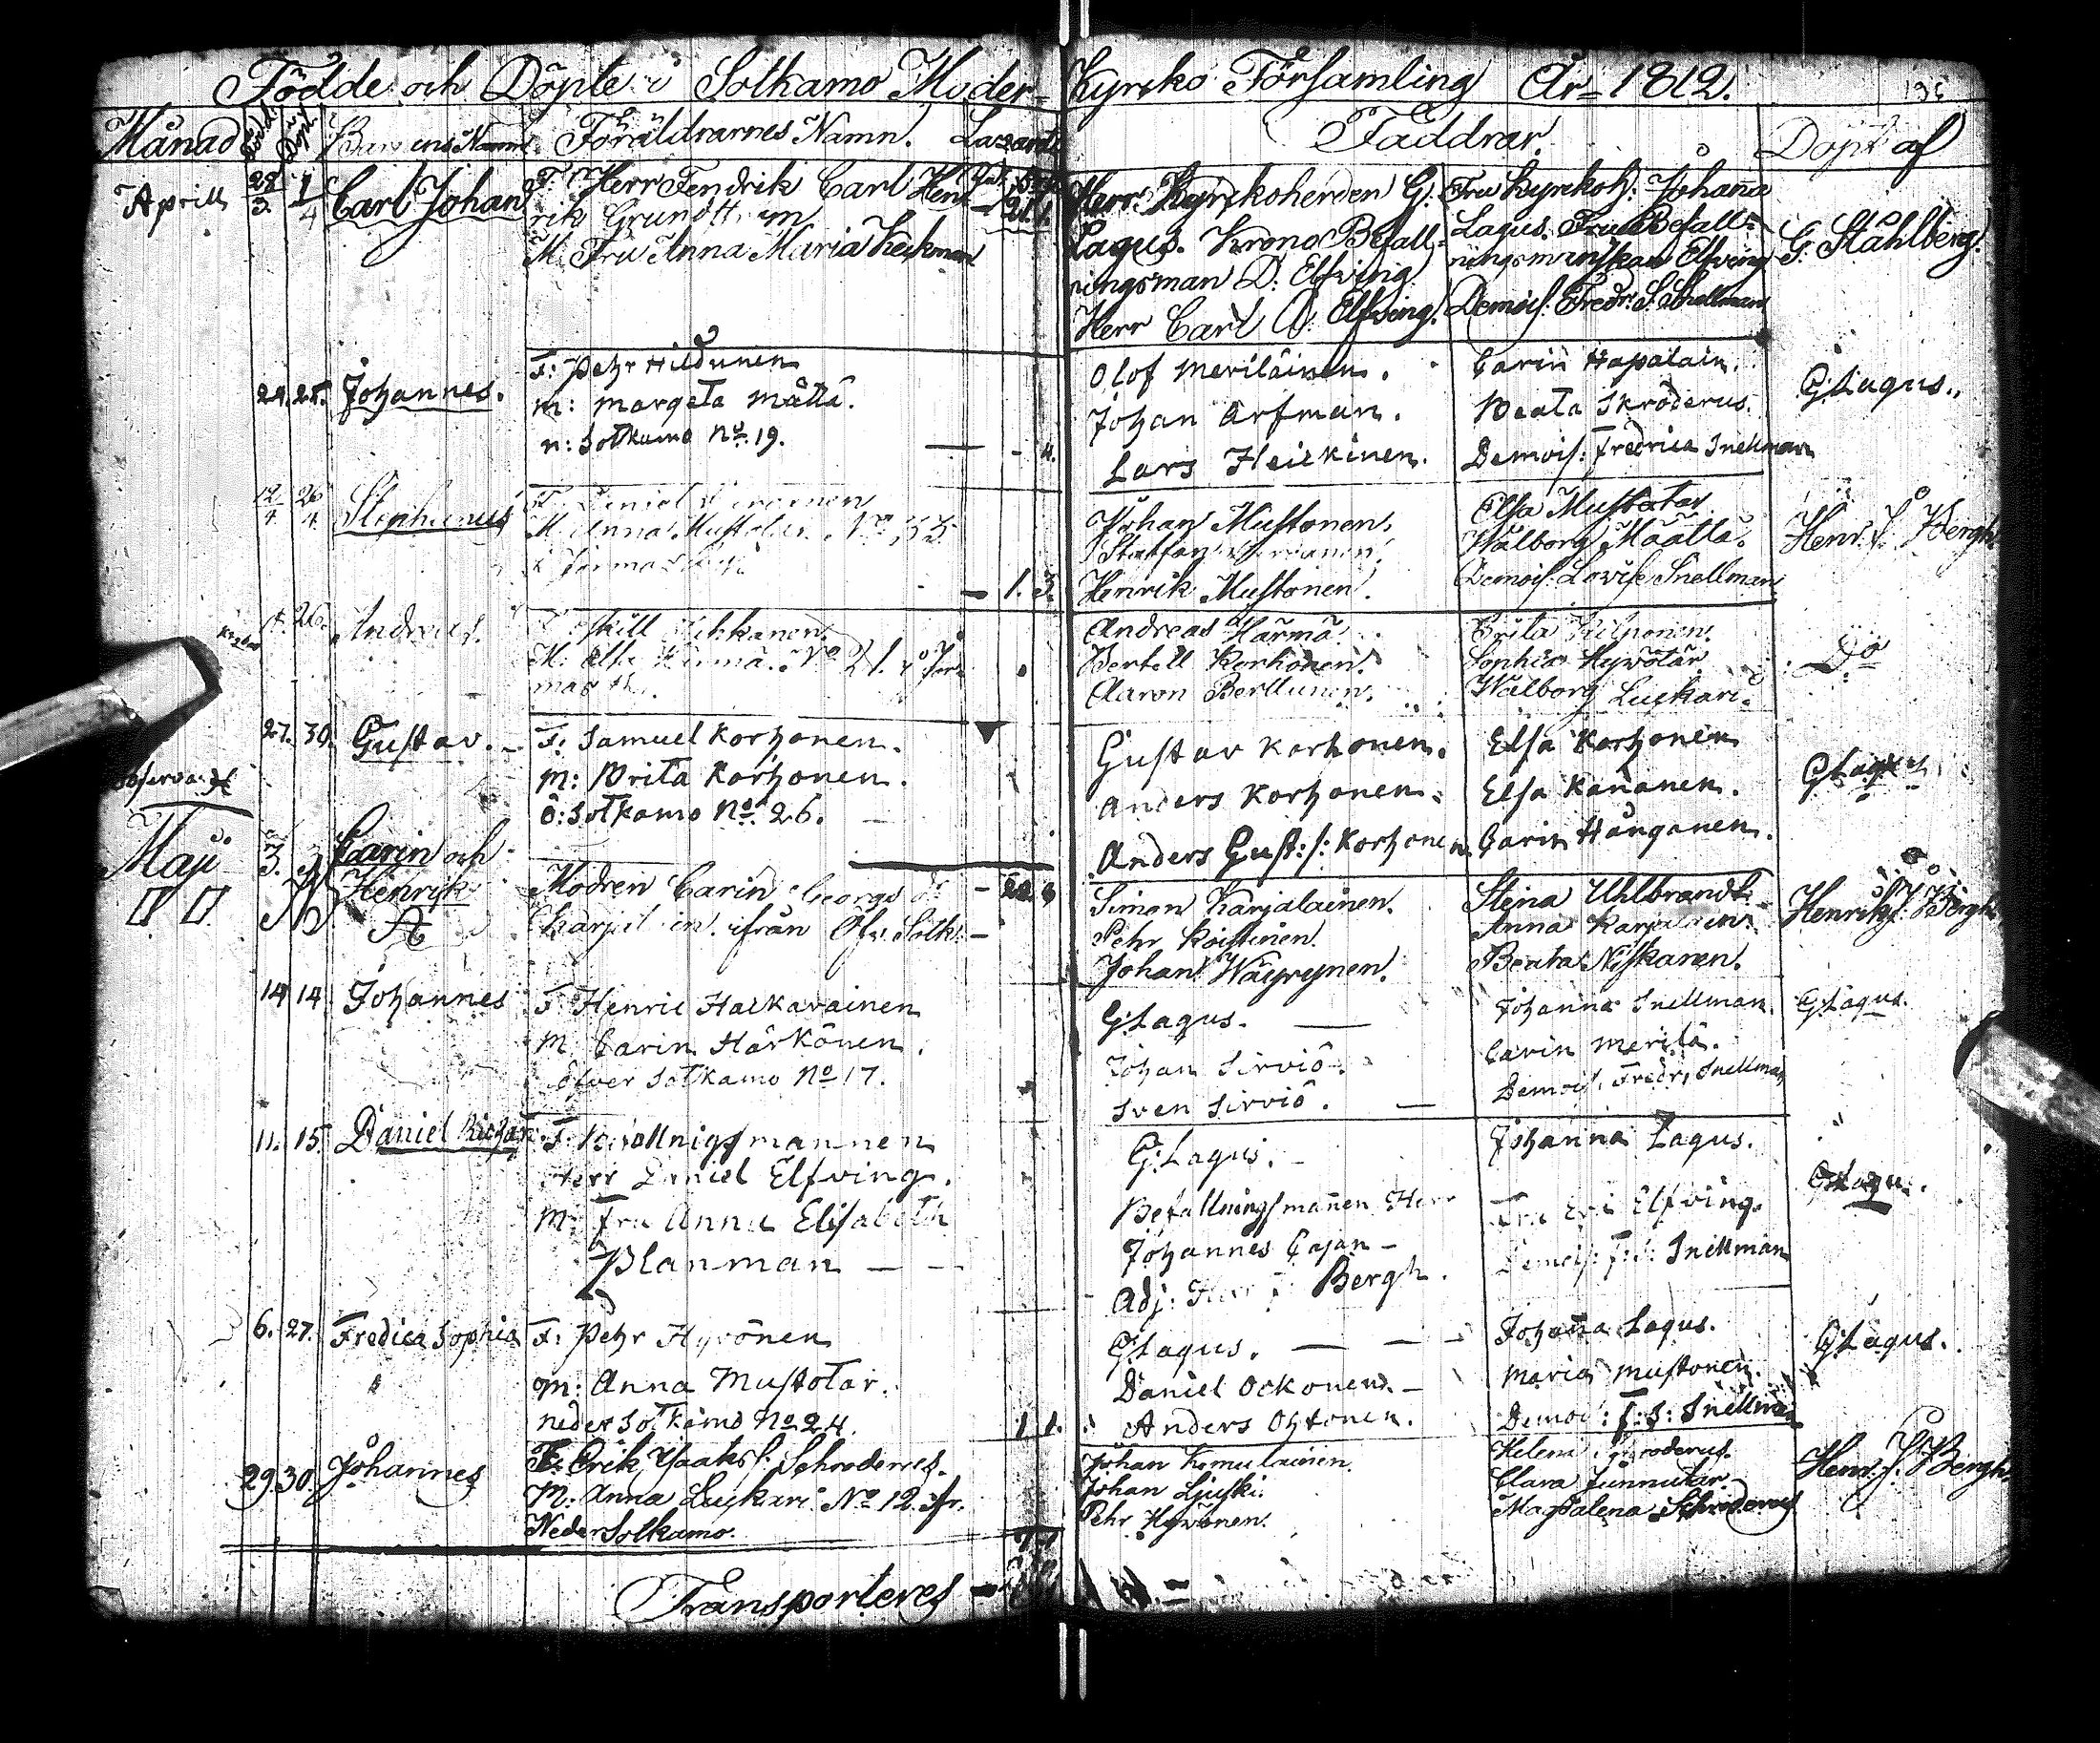 Födde och Döpte i Sotkamo Moder- Kyrko Församling År 1812.
Månad Född Döpt Barnens Namn. Föräldrarnes Namn. Faddrar. Döpt af
Aprill 28/3 1/4 Carl Johan
F: Herr Fendrik Carl Hen-
rik Grundström
M: Fru Anna Maria Keckman
Herr Kyrkoherden G.
Lagus. Krono Befall-
ningsman D. Elfving
Herr Carl D. Elfving.
Fru Kyrkoh: Johanna
Lagus. Fru Befall-
ningsmanskan Elfving
Demois: Fredr: S. Snellman
G. Ståhlberg.
24. 25. Johannes.
F: Pehr Hildunen
M: Margeta Määttä.
n: Sotkamo No. 19. — - 4.
Olof Meriläinen.
Johan Arfman.
Lars Heickinen.
Carin Hapalain.
Beata Skröderus.
Demois: Fredrica Snellman
G: Lagus.
12/4 26/4 Stephanus
M: Anna No 33
— 1. 3.
Johan Mustonen.
Staffan
Henrik Mustonen.
Elsa Mustotar
Walborg Määttä.
Demois: Lovise Snellman
Henr. J. Bergh
26. Andreas.
M: Elsa No 21.
Andreas Härmä
Bertell Korhonen.
Aaron Berttunen.
Brita
Sophia Hyvötär
Walborg Luskari.
Do
27. 30. Gustav.
F: Samuel Korhonen.
M: Brita Korhonen.
Ö: Sotkamo No. 26. —
Gustav Korhonen.
Anders Korhonen.
Anders Gust: s: Korhonen
Elsa Korhonen
Elsa Kananen.
Carin Hänganen.
G Lagus
Observa:
Maji 3. 3. Carin och
Henrik
Modren Carin Georgs dr
ifrån Öfv. Sotk. —
Simon Karjalainen.
Pehr Koistinen.
Johan Wäyrynen.
Stina Uhlbrandt.
Anna
Beata Niskanen.
Henrik J. Bergh
14 14. Johannes
F: Henric Halkavainen
M: Carin Härkönen.
Öfver Sotkamo No 17.
G: Lagus. —
Johan Sirviö.
Sven Sirviö. —
Johanna Snellman.
Carin Merilä.
Demois: Fredr: Snellman
G: Lagus.
11. 15. Daniel
F: Befallnigsmannen
Herr Daniel Elfving.
M: Fru Anna Elisabeth
Planman — —
G: Lagus. —
Befallningsmannen Herr
Johannes Cajan —
Adj: Herr J: Bergh.
Johanna Lagus.
Fru Eva Elfving.
Demois: F: S: Snellman
G Lagus.
6. 27. Fredica Sophia
F: Pehr Hyvönen
M: Anna Mustotar.
neder Sotkamo No 24. 1 1.
G: Lagus. — —
Daniel Ockonen. —
Anders Ohtonen.
Johanna Lagus.
Maria Mustonen.
Demois: F: S: Snellman
G: Lagus.
29. 30. Johannes
F: Erik Isaaks s: Schroderus.
M: Anna Luskari No 12. ifr.
Neder Sotkamo.
Johan Komulainen.
Johan Ljuski.
Pehr Hyvönen.
Helena Schroderus.
Clara Junnutar
Magdalena Schroderus
Henr. J. Bergh
Transporteres —